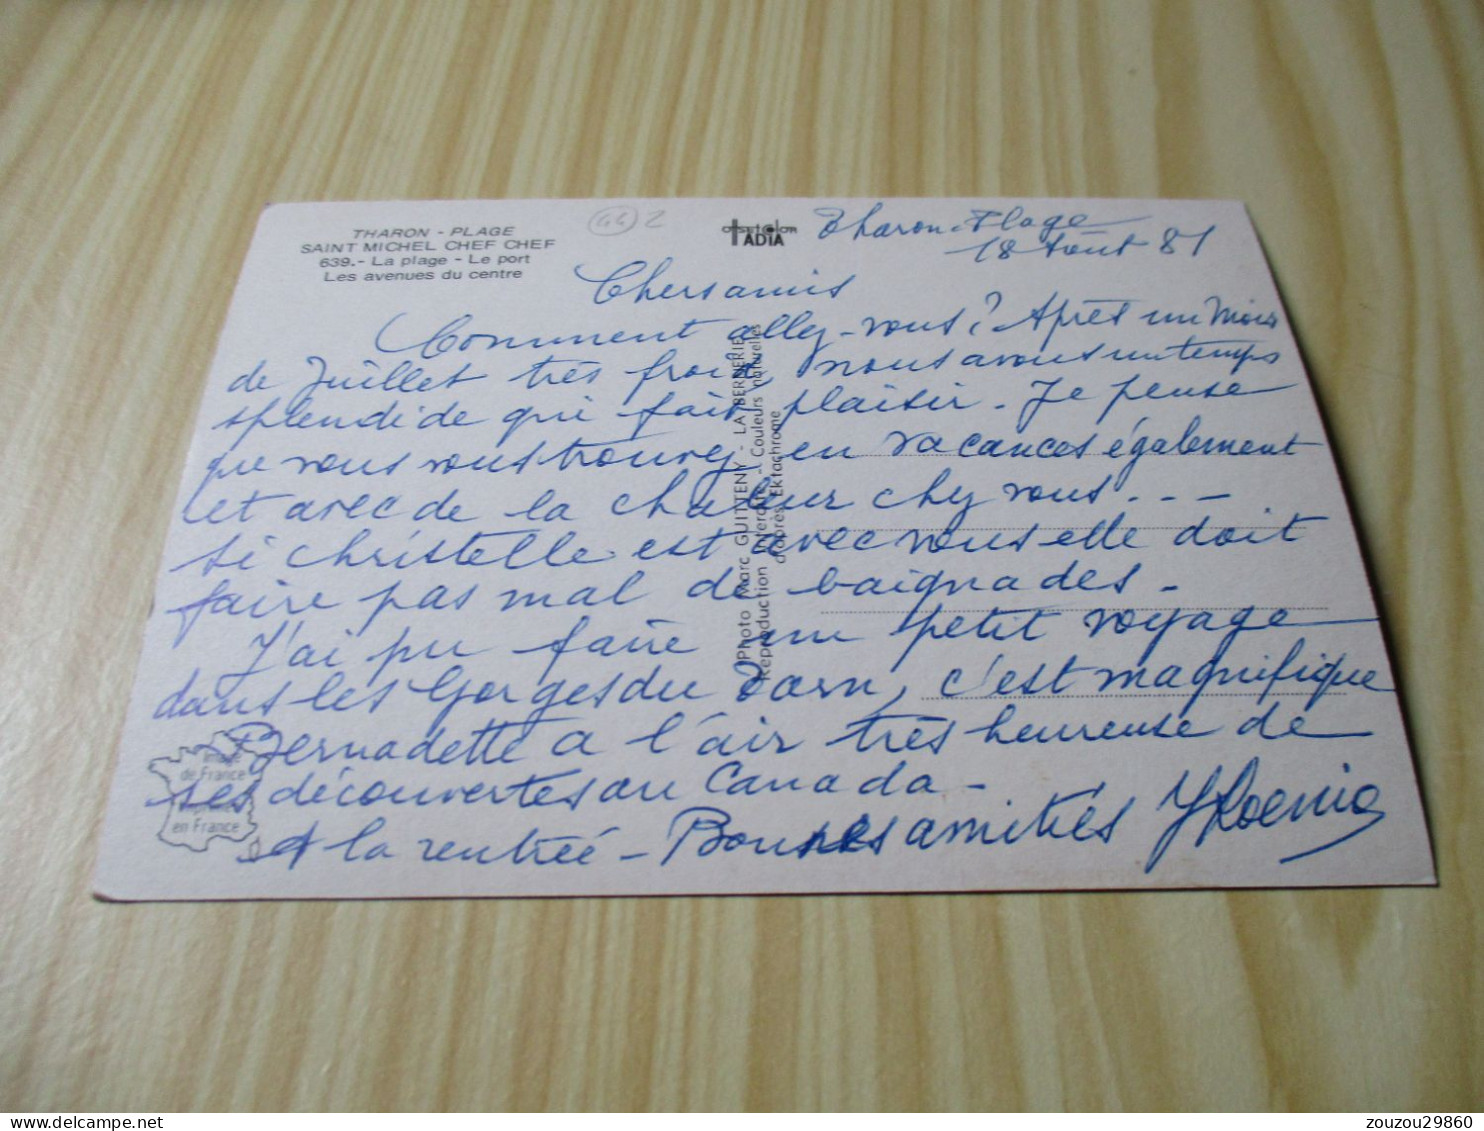 THARON - PLAGE
SAINT MICHEL CHEF CHEF
639.- La plage - Le port
Les avenues du centre
44 2
ADIA
Tharon-Plage
18 Août 81
Chers amis
Comment allez-vous? Après un Mois
de Juillet très froid, nous avons un temps
splendide qui fait plaisir. Je pense
que vous vous trouvez en vacances également
et avec de la chaleur chez vous...
Si Christelle est avec vous elle doit
faire pas mal de baignades.
J'ai pu faire un petit voyage
dans les Gorges du Tarn, c'est magnifique
Bernadette a l'air très heureuse de
ses découvertes au Canada -
A la rentrée - Bonnes amitiés YKoenig
Photo Marc GUITTENY - LA BERNERIE
Reproduction interdite - Couleurs naturelles
d'après Ektachrome
Image
de France
en France
zouzou29860